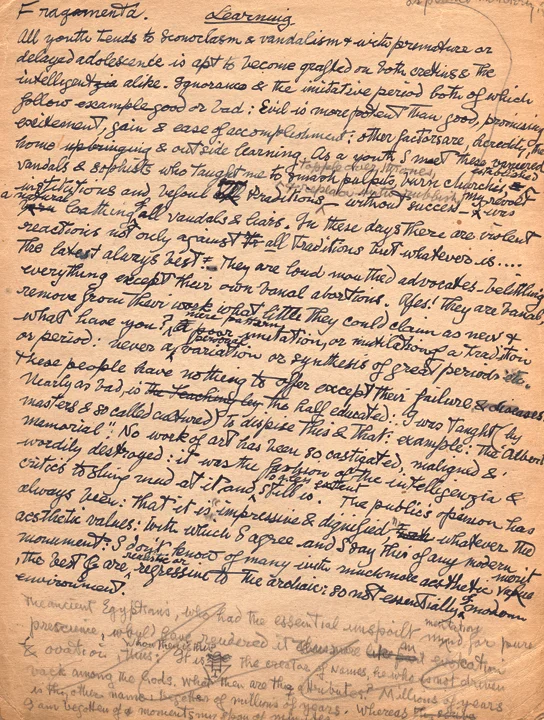 Fragamenta. Learning
All youth tends to iconoclasm & vandalism & with premature or
delayed adolescence is apt to become grafted on both cretins & the
intelligentzia alike. Ignorance & the imitative period both of which
follow example good or bad: Evil is more potent than good, promising
excitement, gain & ease of accomplishment: other factors are, heredity, the
home upbringing & outside learning. As a youth I met these veneered
vandals & sophists who taught me to smash pulpits, burn churches &
institutions and defoul all traditions – without success – my revolt
a natural loathing of all vandals & liars. In these days there are violent
reactions not only against all traditions but whatever is....
the latest always best & they are loud mouthed advocates – belittling
everything except their own banal abortions. Yes! they are banal,
remove from their work what little they could claim as new &
what have you? A poor imitation, or mutilation of a tradition
or period: never a personal variation or synthesis of great periods etc.
these people have nothing to offer except their failure & diseases.
Nearly as bad, is the teaching by the half educated: I was taught by
masters & so called cultured to dispise this & that: example: the Albert
memorial: No work of art has been so castigated, maligned &
wordily destroyed: it was the fashion of the intelligenzia &
critics to sling mud at it and to some extent still is. The public's opinion has
always been: that it is impressive & dignified, whatever the
aesthetic values: with which I agree and I say this of any modern
monument: I don't know of many with much more aesthetic merit
, the best are regressive to the archaic: so not essentially of modern
environment.
The ancient Egyptians, who had the essential unspoilt mind for pure
prescience, would have rendered it evocation
& ovation thus: It is the creator of names, he who is not driven
back among the Gods. What then are thy attributes? Millions of years
is thy other name: begotten of millions of years. Whereas
I am begotten of moments my span of minutes